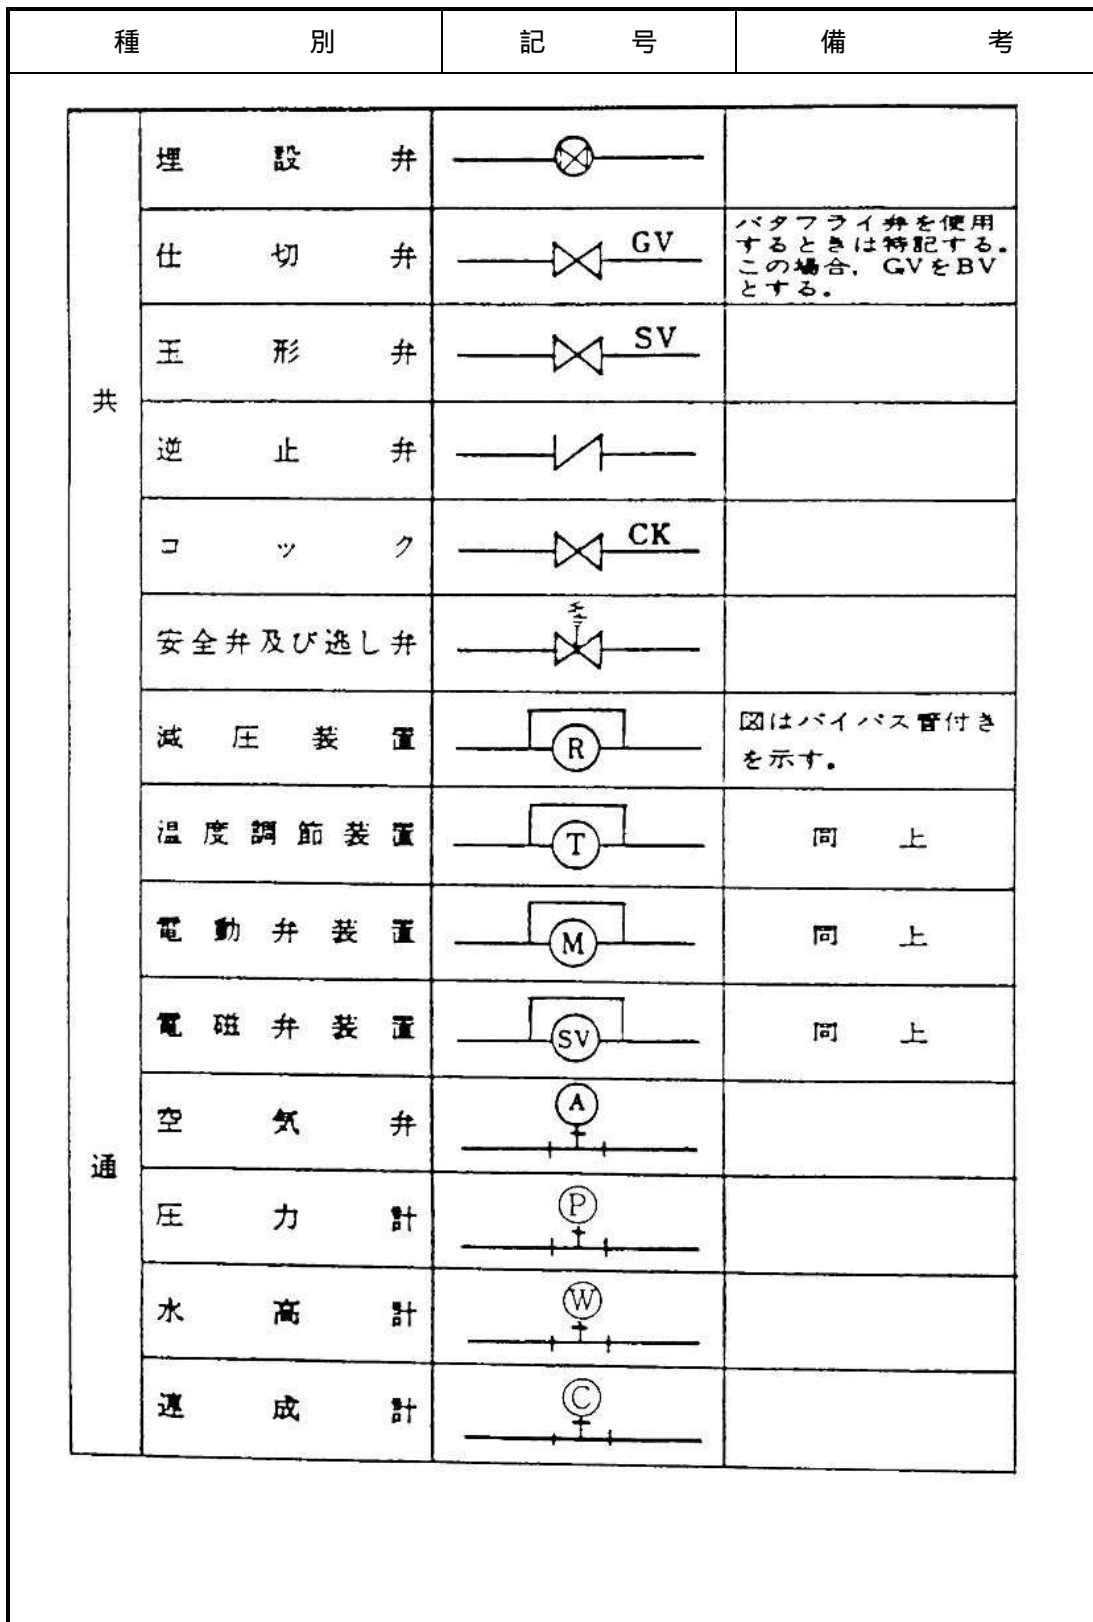 種別 記号 備考
共通
埋設弁
仕切弁 GV バタフライ弁を使用
するときは特記する。
この場合，GVをBV
とする。
玉形弁 SV
逆止弁
コック CK
安全弁及び逃し弁
減圧装置 R 図はバイパス管付き
を示す。
温度調節装置 T 同上
電動弁装置 M 同上
電磁弁装置 SV 同上
空気弁 A
圧力計 P
水高計 W
連成計 C